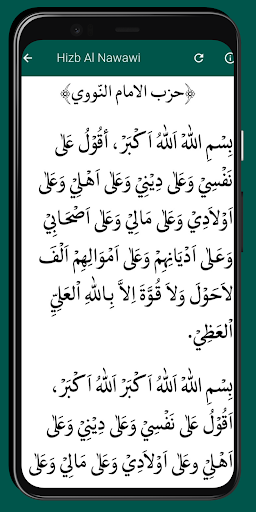 Hizb Al Nawawi
﴿حزب الامام النّووي﴾
بِسْمِ اللهْ اَللهُ اَكْبَرْ ، أقُوْلُ عَلٰى
نَفْسِيْ وَعَلٰى دِيْنِيْ وَعَلٰى اَهْلِيْ وَعَلٰى
اَوْلَادِيْ وَعَلٰى مَالِيْ وَعَلٰى اَصْحَابِيْ
وَعَلٰى اَدْيَانِهِمْ وَعَلٰى اَمْوَالِهِمْ اَلْفَ
لَاحَوْلَ وَلَا قُوَّةَ اِلاَّ بِاللهِ الْعَلِيِّ
اْلعَظِيْمْ.
بِسْمِ اللهْ اَللهُ اَكْبَرْ اَللهُ اَكْبَرْ ،
اَقُوْلُ عَلٰى نَفْسِيْ وَعَلٰى دِيْنِيْ وَعَلٰى
اَهْلِيْ وعَلٰى اَوْلَادِيْ وَعَلٰى مَالِيْ وَعَلٰى